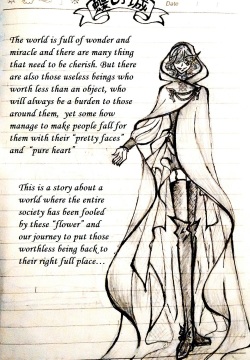 Date
The world is full of wonder and
miracle and there are many thing
that need to be cherish. But there
are also those useless beings who
worth less than an object, who
will always be a burden to those
around them, yet some how
manage to make people fall for
them with their "pretty faces"
and "pure heart"
This is a story about a
world where the entire
society has been fooled
by these "flower" and
our journey to put those
worthless being back to
their right full place...